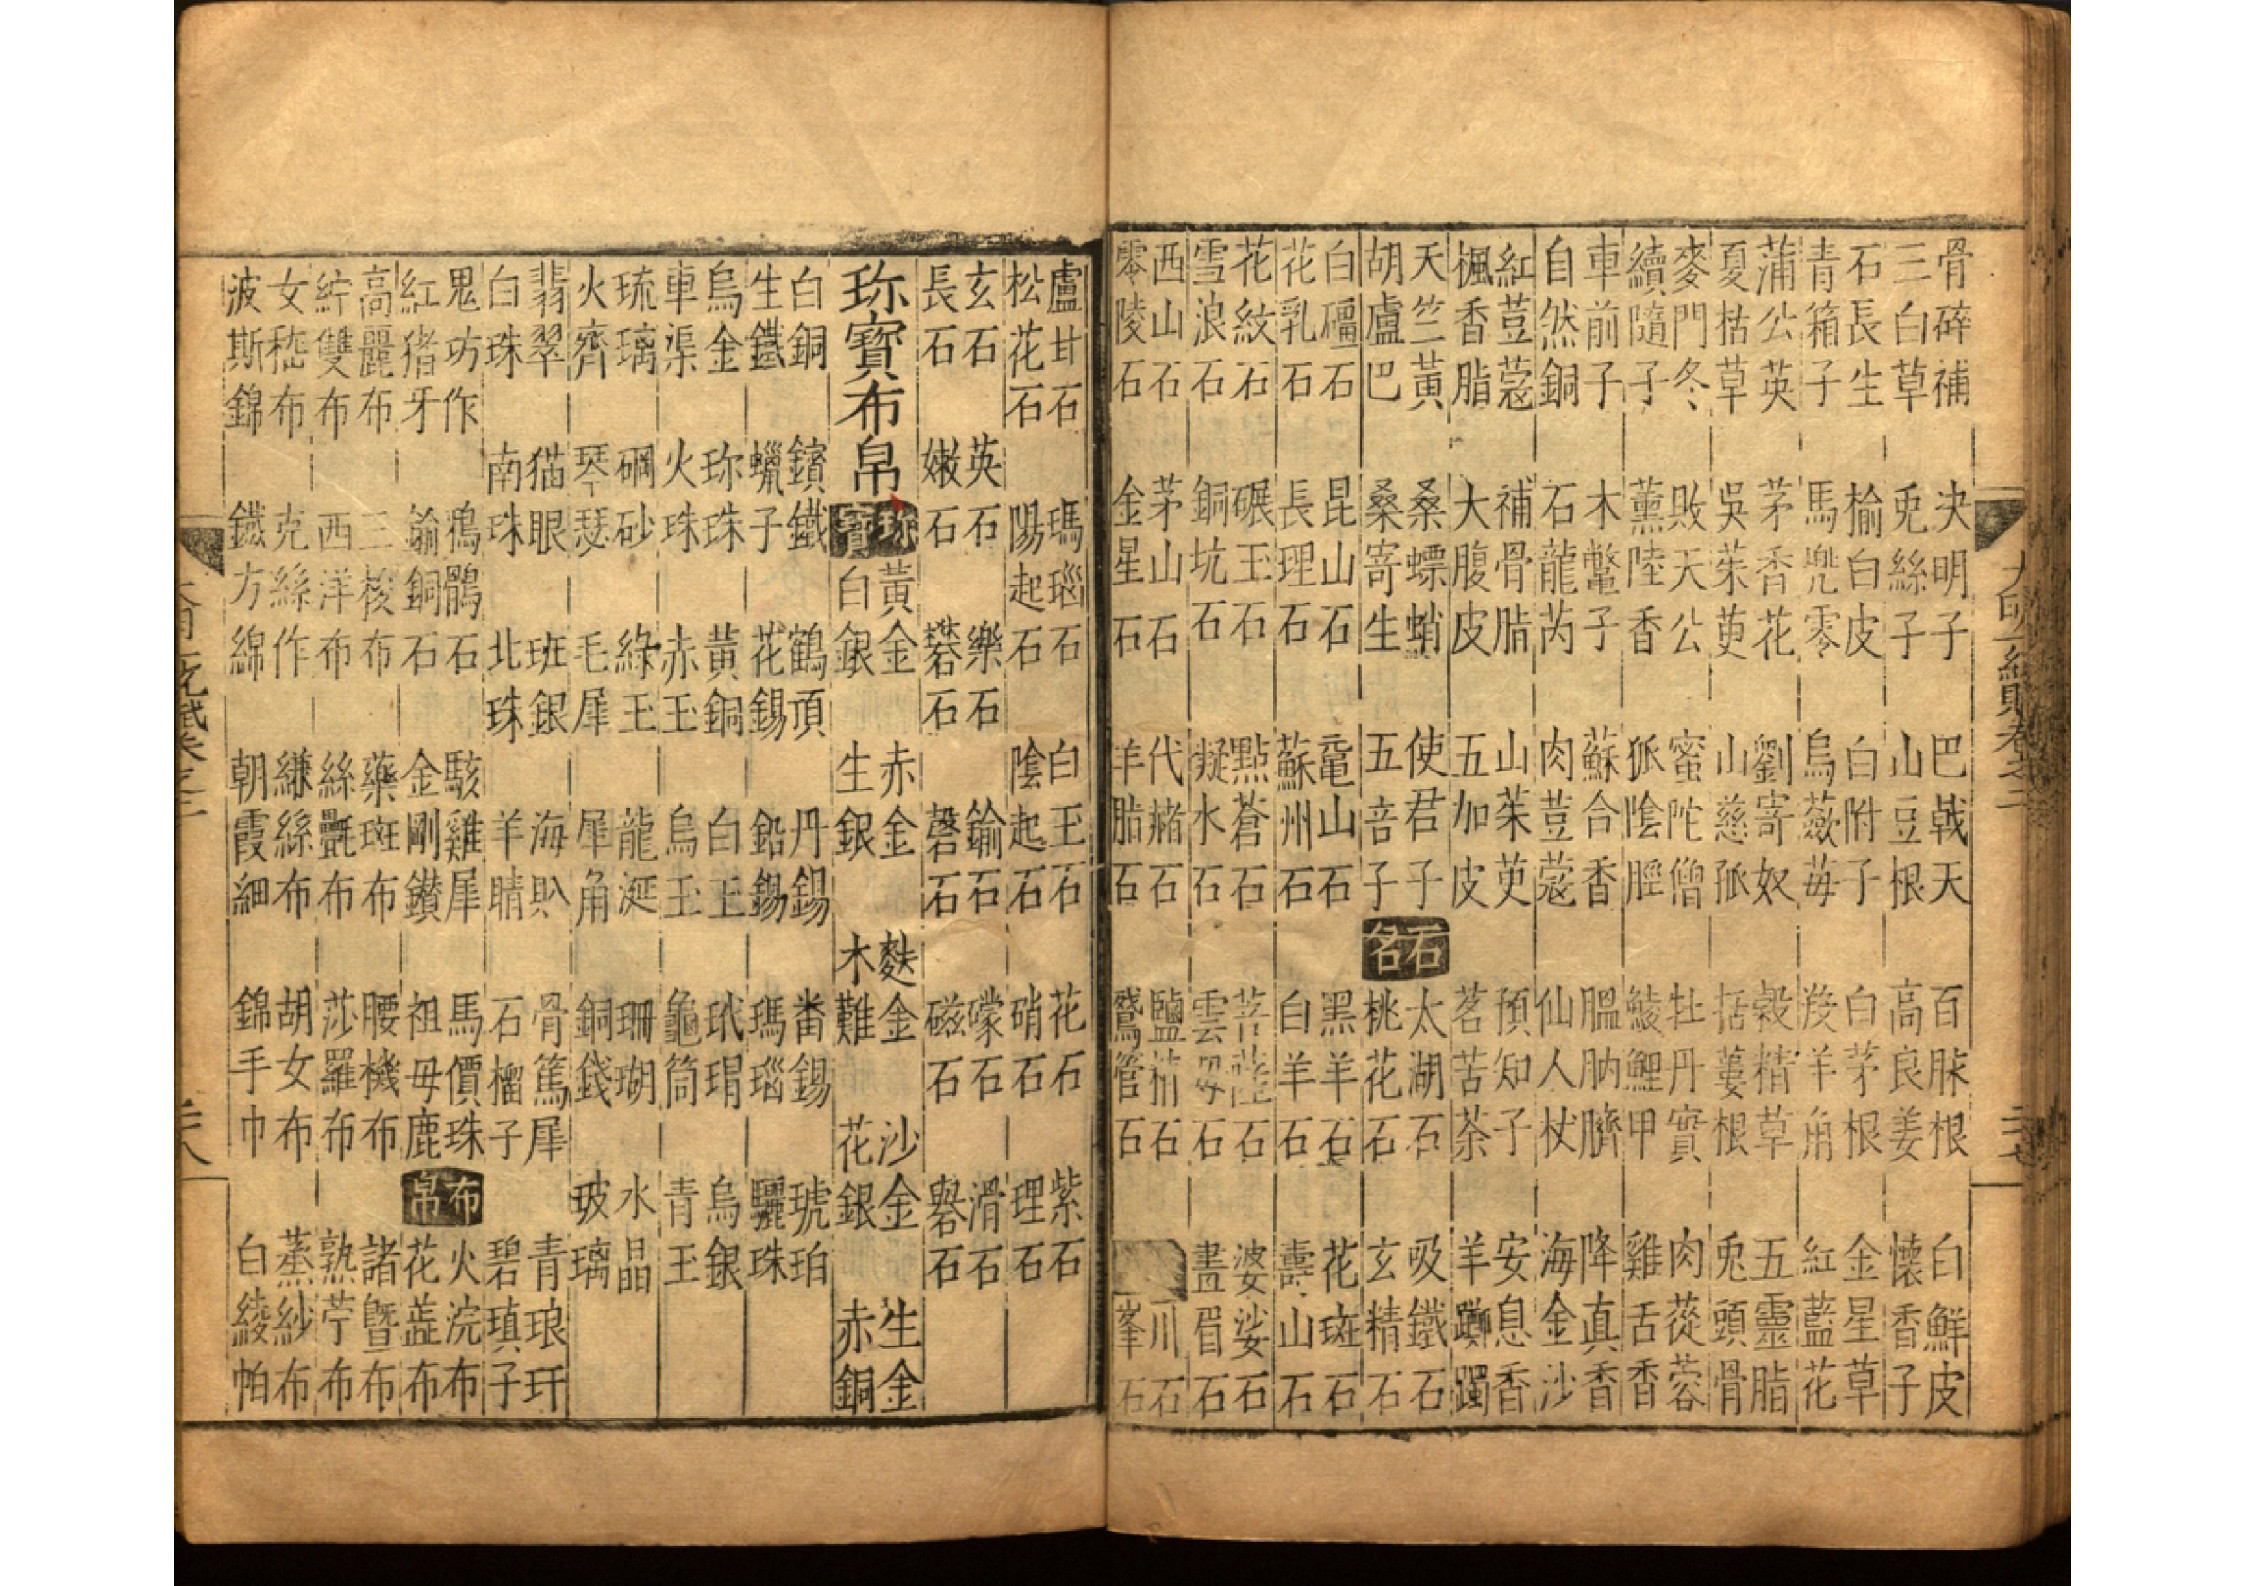 大明一統賦卷之二
二十七
骨碎補 決明子 巴戟天 百脉根 白鮮皮
三白草 兎絲子 山豆根 高良姜 懷香子
石長生 榆白皮 白附子 白茅根 金星草
青箱子 馬兜零 烏蘞苺 羖羊角 紅藍花
蒲公英 茅香花 劉寄奴 穀精草 五靈脂
夏枯草 吳茱萸 山慈孤 括蔞根 兎頭骨
麥門冬 敗天公 蜜陀僧 牡丹實 肉蓯蓉
續隨子 薰陸香 狐陰脛 鯪鯉甲 雞舌香
車前子 木鼈子 蘇合香 膃肭臍 降真香
自然銅 石龍芮 肉荳蔻 仙人杖 海金沙
紅荳蔻 補骨脂 山茱萸 預知子 安息香
楓香脂 大腹皮 五加皮 茗苦荼 羊躑躅
天竺黃 桑螵蛸 使君子
胡盧巴 桑寄生 五音子
石名
太湖石 吸鐵石
桃花石 玄精石
白礓石 昆山石 黿山石 黑羊石 花斑石
花乳石 長理石 蘇州石 白羊石 壽山石
花紋石 碾玉石 點蒼石 菩薩石 婆娑石
雪浪石 銅坑石 凝水石 雲母石 畫眉石
西山石 茅山石 代赭石 鹽楠石 川石
零陵石 金星石 羊脂石 鵞管石 峯石
盧甘石 瑪瑙石 白玉石 花石 紫石
松花石 陽起石 陰起石 硝石 理石
玄石 英石 樂石 鍮石 礞石 滑石
長石 嫩石 礬石 磬石 磁石 礜石
珎寶布帛
珎寶
黃金 赤金 麩金 沙金 生金
白銀 生銀 木難 花銀 赤銅
白銅 鑌鐵 鶴頂 丹錫 番錫 琥珀
生鐵 蠟子 花錫 鉛錫 瑪瑙 驪珠
烏金 珎珠 黃銅 白玉 玳瑁 烏銀
車渠 火珠 赤玉 烏玉 龜筒 青玉
琉璃 硇砂 綠玉 龍涎 珊瑚 水晶
火齊 琴瑟 毛犀 犀角 銅錢 玻璃
翡翠 猫眼 班銀 海𧵅 骨篤犀 青琅玕
白珠 南珠 北珠 羊睛 石榴子 碧瑱子
鬼功作 鴉鶻石 駭雞犀 馬價珠
紅猪牙 鍮銅石 金剛鑚 祖母鹿
布帛
火浣布
花蕋布
高麗布 三梭布 藥斑布 腰機布 諸暨布
紵雙布 西洋布 絲氎布 莎羅布 熟苧布
女嵇布 克絲作 縑絲布 胡女布 蒸紗布
波斯錦 鐵方綿 朝霞細 錦手巾 白綾帕
大明一統賦卷之二
二十八